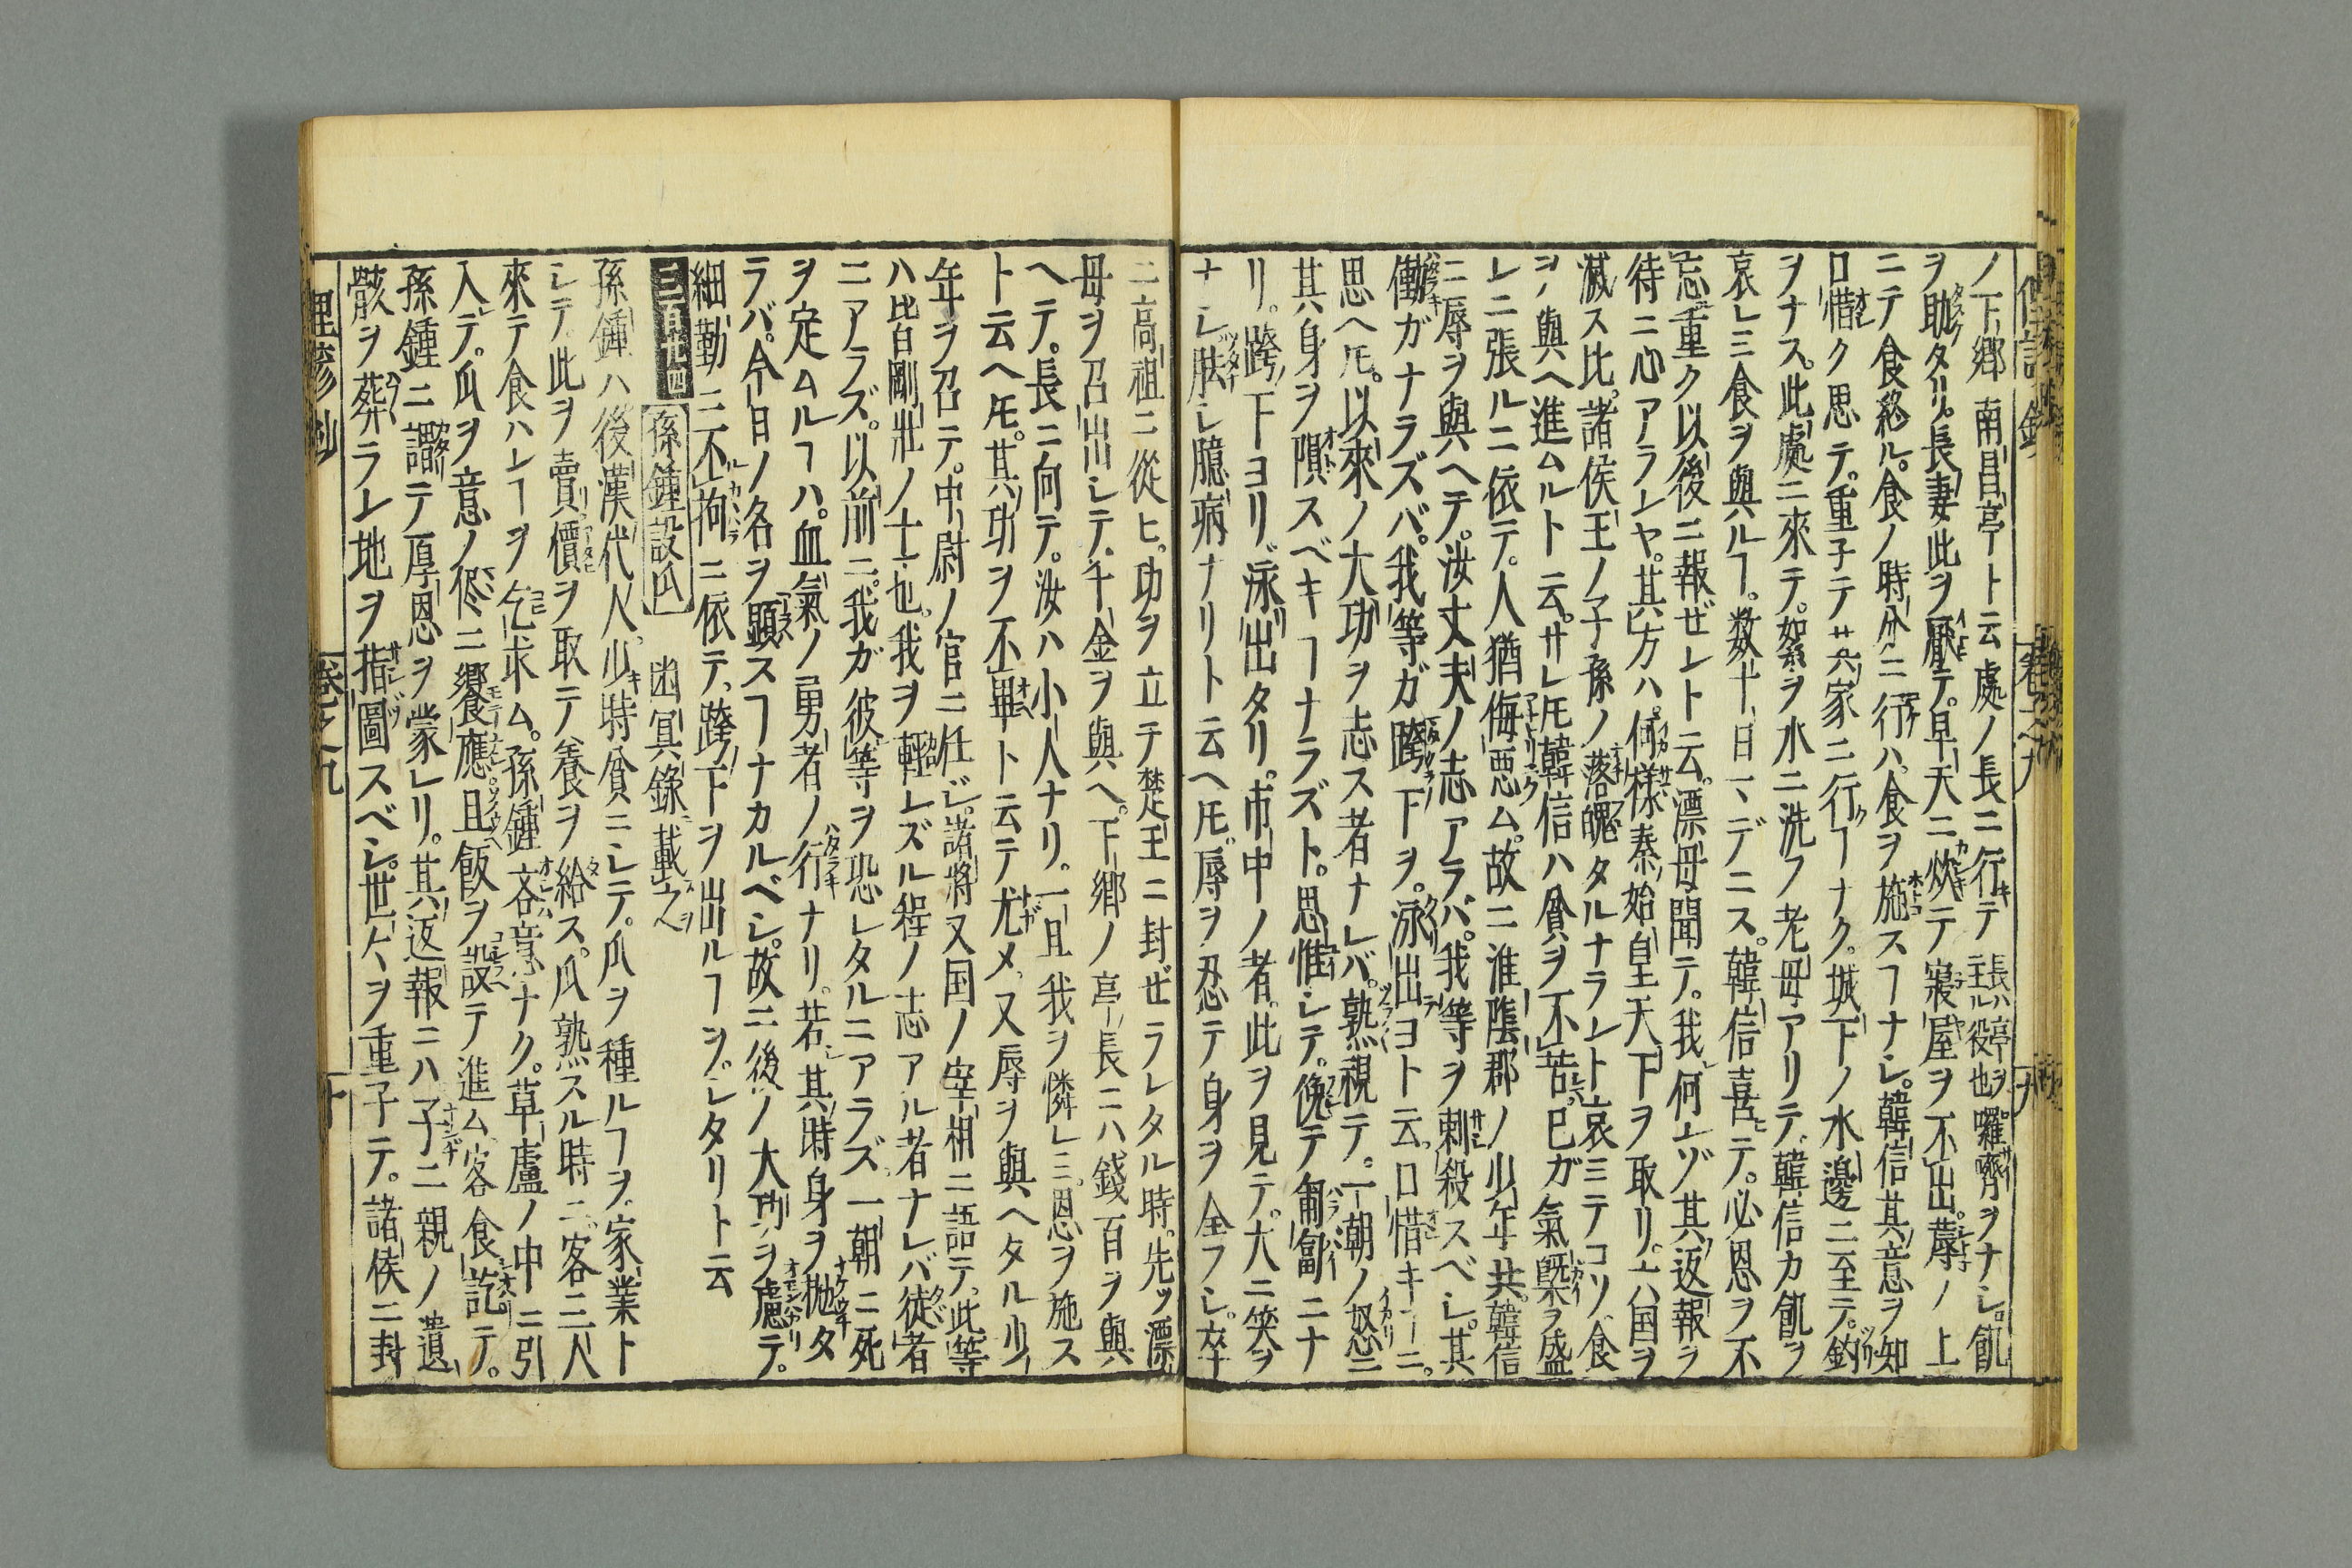 ノ下郷南昌亭ト云處ノ長ニ行テ長ハ亭ヲ主ル役也囉齋ヲナシ。飢
ヲ助タリ。長妻此ヲ厭テ。早天ニ炊テ寢屋ヲ不出。蓐ノ上
ニテ食終ル。食ノ時分ニ行ハ。食ヲ施スヿナシ。韓信其意ヲ知
口惜ク思テ。重子テ其家ニ行ヿナク。城下ノ水邊ニ至テ。釣
ヲナス。此處ニ來テ。絮ヲ水ニ洗フ老母アリテ。韓信カ飢ヲ
哀レミ食ヲ與ルヿ。数十日マデニス。韓信喜テ。必恩ヲ不
忘重ク以後ニ報ゼント云。漂母聞テ。我何ンゾ其返報ヲ
待ニ心アランヤ。其方ハ。何樣秦始皇天下ヲ取リ。六国ヲ
滅ス比。諸侯王ノ子孫ノ落魄タルナラント哀ミテコソ。食
ヲ與ヘ進ムルト云。サレ𪜈韓信ハ貧ヲ不苦。己ガ氣槩ヲ盛
レニ張ルニ依テ。人猶侮惡ム。故ニ淮陰郡ノ少年共。韓信
ニ辱ヲ與ヘテ。汝丈夫ノ志アラバ。我等ヲ刺殺スベシ。其
働ガナラズバ。我等ガ跨下ヲ。泳出ヨト云。口惜キヿニ。
思ヘ𪜈。以來ノ大功ヲ志ス者ナレバ。熟視テ。一朝ノ怒ニ
其身ヲ隕スベキヿナラズト。思惟シテ。俛テ匍匐ニナ
リ。跨下ヨリ泳出タリ。市中ノ者。此ヲ見テ。大ニ笑ヲ
ナシ。怯レ臆病ナリト云ヘ𪜈。辱ヲ忍テ身ヲ全フシ。卒
ニ高祖ニ從ヒ。功ヲ立テ楚王ニ封ゼラレタル時。先ツ漂
母ヲ召出シテ。千金ヲ與ヘ。下郷ノ亭長ニハ錢百ヲ與
ヘテ。長ニ向テ。汝ハ小人ナリ。一旦我ヲ憐レミ。恩ヲ施ス
ト云ヘ𪜈。其功ヲ不畢ト云テ尤メ。又辱ヲ與ヘタル少
年ヲ召テ。中尉ノ官ニ任ジ。諸將又国ノ宰相ニ語テ。此等
ハ皆剛壯ノ士也。我ヲ輕ンズル程ノ志アル者ナレバ徒者
ニアラズ。以前ニ。我ガ彼等ヲ恐レタルニアラズ。一朝ニ死
ヲ定ムルヿハ。血氣ノ勇者ノ行ナリ。若其時身ヲ抛タ
ラバ。今日ノ名ヲ顕スヿナカルベシ。故ニ後ノ大功ヲ慮テ。
細勤ニ不拘ニ依テ。跨下ヲ出ルヿヲシタリト云
三百九十四 孫鍾設瓜 幽冥錄載之
孫鍾ハ後漢代人。少時貧ニシテ。瓜ヲ種ルヿヲ家業ト
シテ此ヲ賣價ヲ取テ養ヲ給ス。瓜熟スル時ニ。客三人
來テ食ハンヿヲ乞求ム。孫鍾吝意ナク。草廬ノ中ニ引
入テ。瓜ヲ意ノ侭ニ饗應。且飯ヲ設テ進ム。客食訖テ。
孫鍾ニ語テ厚恩ヲ蒙レリ。其返報ニハ子ニ親ノ遺
骸ヲ葬ラン地ヲ指圖スベシ。世々ヲ重子テ。諸侯ニ封
理諺抄 卷之九 十